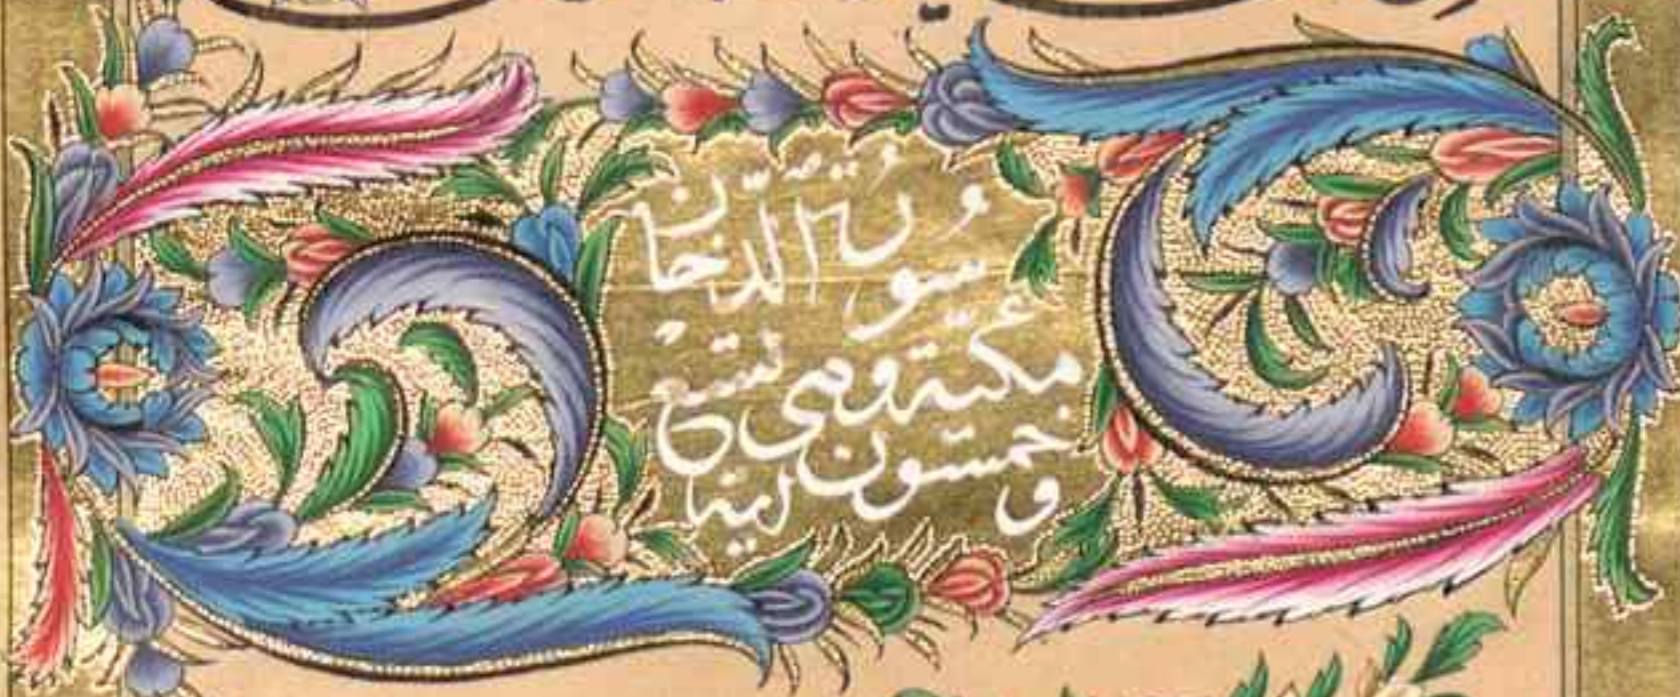 سُورَةُ الدّخان
مكّيّة وهى تسع
و خمسون اية